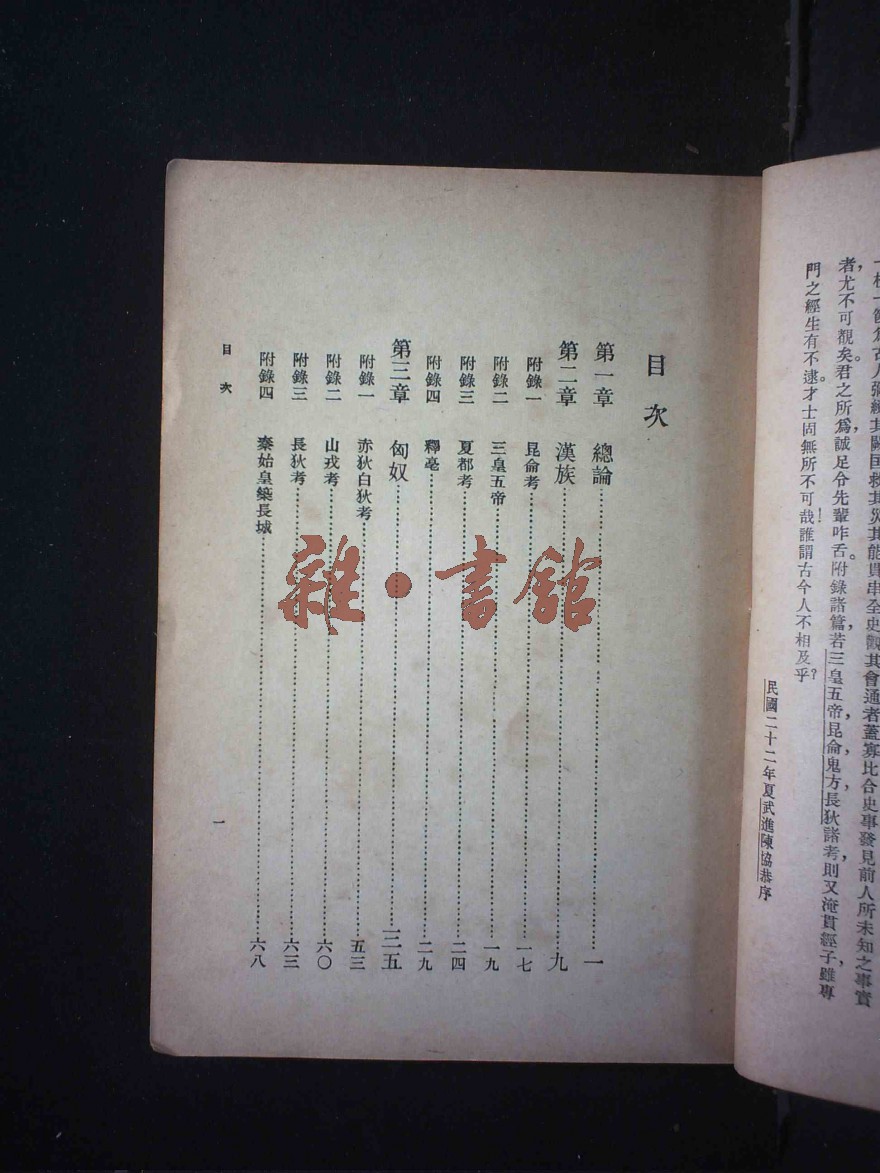 者尤不可覩矣。君之所爲,誠足令先輩咋舌。附錄諸篇,若三皇五帝,昆侖,鬼方,長狄諸考,則又淹貫經子,雖專
門之經生有不逮。才士固無所不可哉!誰謂古今人不相及乎?
民國二十二年夏武進陳協恭序
目次
第一章 總論……一
第二章 漢族……九
附錄一 昆侖考……一七
附錄二 三皇五帝……一九
附錄三 夏都考……二四
附錄四 釋亳……二九
第三章 匈奴……三五
附錄一 赤狄白狄考……五三
附錄二 山戎考……六〇
附錄三 長狄考……六三
附錄四 秦始皇築長城……六八
目次
一
雜·書館